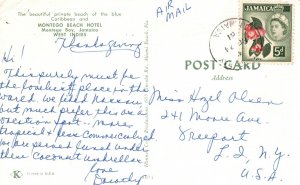 The beautiful private beach of the blue
Caribbean and
MONTEGO BEACH HOTEL
Montego Bay, Jamaica
WEST INDIES
AIR
MAIL
JAMAICA
5D
Thanksgiving
Hi!
This surely must be
the loveliest place in the
world. We liked Nassau
but much prefer this as a
vacation spot. More
tropical & less commercialized
served lunch under
their coconut umbrellas
Love
Dorothy
POST CARD
Address
Miss Hazel Olsen
241 Moore Ave.
Freeport
L. I., N.Y.
U.S.A.
K